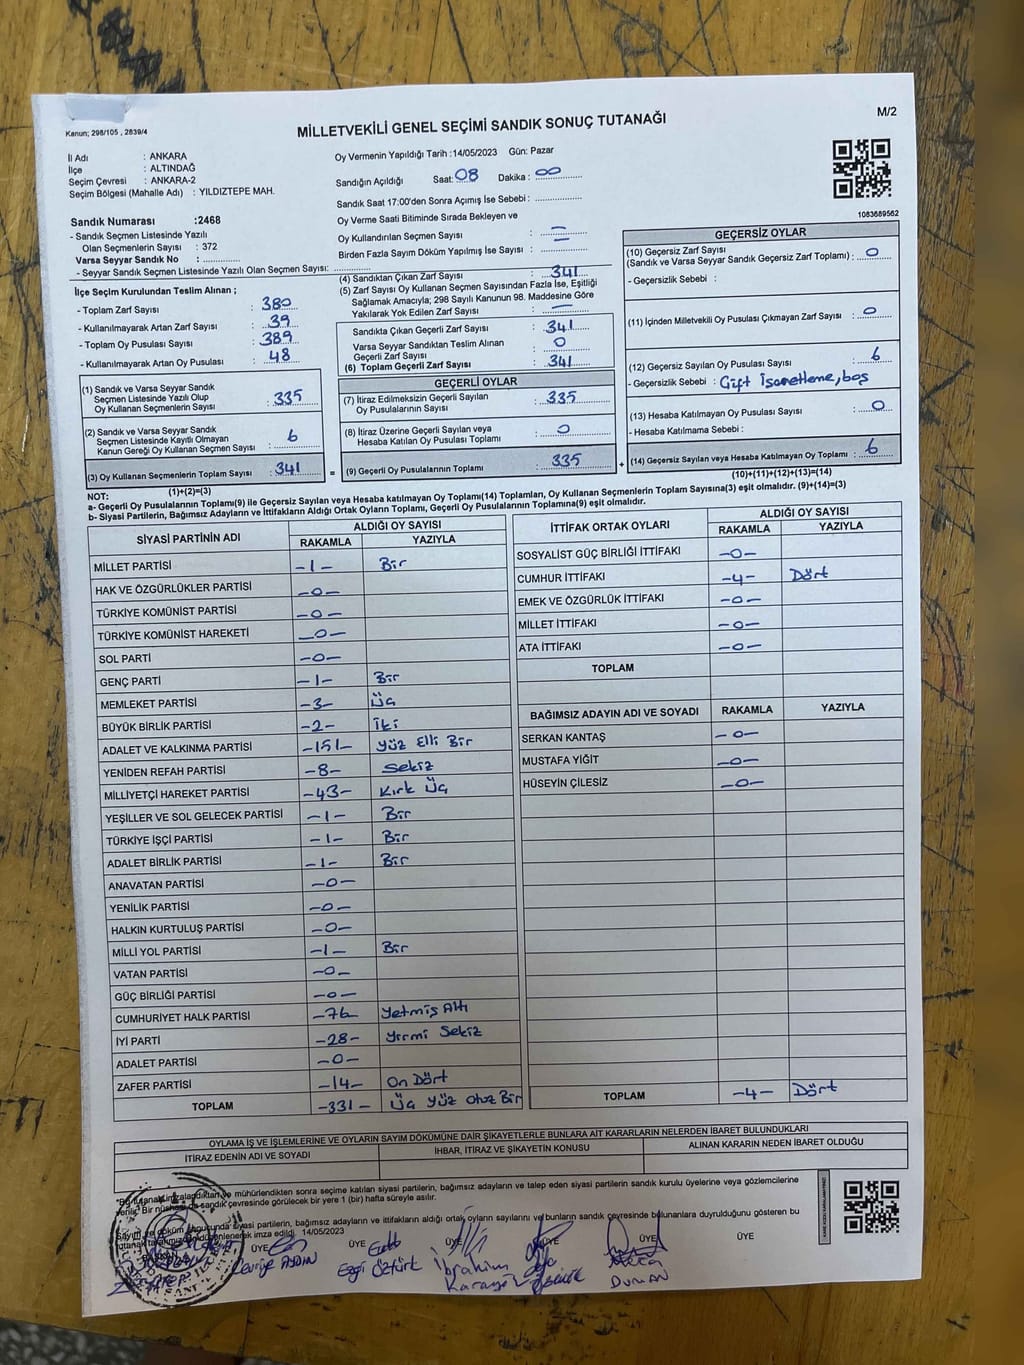 Kanun; 298/105 , 2839/4
MİLLETVEKİLİ GENEL SEÇİMİ SANDIK SONUÇ TUTANAĞI
M/2
İl Adı : ANKARA
İlçe : ALTINDAĞ
Seçim Çevresi : ANKARA-2
Seçim Bölgesi (Mahalle Adı) : YILDIZTEPE MAH.
Oy Vermenin Yapıldığı Tarih :14/05/2023 Gün: Pazar
Sandığın Açıldığı Saat: 08 Dakika : 00
Sandık Saat 17:00'den Sonra Açımış İse Sebebi :
Oy Verme Saati Bitiminde Sırada Bekleyen ve
Oy Kullandırılan Seçmen Sayısı : —
Birden Fazla Sayım Döküm Yapılmış İse Sayısı : —
1083689562
Sandık Numarası :2468
- Sandık Seçmen Listesinde Yazılı
Olan Seçmenlerin Sayısı : 372
Varsa Seyyar Sandık No :
- Seyyar Sandık Seçmen Listesinde Yazılı Olan Seçmen Sayısı:
İlçe Seçim Kurulundan Teslim Alınan ;
- Toplam Zarf Sayısı : 380
- Kullanılmayarak Artan Zarf Sayısı : 39
- Toplam Oy Pusulası Sayısı : 389
- Kullanılmayarak Artan Oy Pusulası : 48
(1) Sandık ve Varsa Seyyar Sandık
Seçmen Listesinde Yazılı Olup
Oy Kullanan Seçmenlerin Sayısı : 335
(2) Sandık ve Varsa Seyyar Sandık
Seçmen Listesinde Kayıtlı Olmayan
Kanun Gereği Oy Kullanan Seçmen Sayısı : 6
(3) Oy Kullanan Seçmenlerin Toplam Sayısı : 341
(1)+(2)=(3)
(4) Sandıktan Çıkan Zarf Sayısı : 341
(5) Zarf Sayısı Oy Kullanan Seçmen Sayısından Fazla İse, Eşitliği
Sağlamak Amacıyla; 298 Sayılı Kanunun 98. Maddesine Göre
Yakılarak Yok Edilen Zarf Sayısı : —
Sandıkta Çıkan Geçerli Zarf Sayısı : 341
Varsa Seyyar Sandıktan Teslim Alınan
Geçerli Zarf Sayısı : 0
(6) Toplam Geçerli Zarf Sayısı : 341
GEÇERLİ OYLAR
(7) İtiraz Edilmeksizin Geçerli Sayılan
Oy Pusulalarının Sayısı : 335
(8) İtiraz Üzerine Geçerli Sayılan veya
Hesaba Katılan Oy Pusulası Toplamı : 0
=
(9) Geçerli Oy Pusulalarının Toplamı : 335
+
GEÇERSİZ OYLAR
(10) Geçersiz Zarf Sayısı
(Sandık ve Varsa Seyyar Sandık Geçersiz Zarf Toplamı) : 0
- Geçersizlik Sebebi :
(11) İçinden Milletvekili Oy Pusulası Çıkmayan Zarf Sayısı : 0
(12) Geçersiz Sayılan Oy Pusulası Sayısı : 6
- Geçersizlik Sebebi : Çift İşaretleme, boş
(13) Hesaba Katılmayan Oy Pusulası Sayısı : 0
- Hesaba Katılmama Sebebi :
(14) Geçersiz Sayılan veya Hesaba Katılmayan Oy Toplamı : 6
(10)+(11)+(12)+(13)=(14)
NOT:
a- Geçerli Oy Pusulalarının Toplamı(9) ile Geçersiz Sayılan veya Hesaba katılmayan Oy Toplamı(14) Toplamları, Oy Kullanan Seçmenlerin Toplam Sayısına(3) eşit olmalıdır. (9)+(14)=(3)
b- Siyasi Partilerin, Bağımsız Adayların ve İttifakların Aldığı Ortak Oyların Toplamı, Geçerli Oy Pusulalarının Toplamına(9) eşit olmalıdır.
SİYASİ PARTİNİN ADI
ALDIĞI OY SAYISI
RAKAMLA YAZIYLA
MİLLET PARTİSİ -1- Bir
HAK VE ÖZGÜRLÜKLER PARTİSİ -0-
TÜRKİYE KOMÜNİST PARTİSİ -0-
TÜRKİYE KOMÜNİST HAREKETİ -0-
SOL PARTİ -0-
GENÇ PARTİ -1- Bir
MEMLEKET PARTİSİ -3- Üç
BÜYÜK BİRLİK PARTİSİ -2- İki
ADALET VE KALKINMA PARTİSİ -151- Yüz Elli Bir
YENİDEN REFAH PARTİSİ -8- Sekiz
MİLLİYETÇİ HAREKET PARTİSİ -43- Kırk Üç
YEŞİLLER VE SOL GELECEK PARTİSİ -1- Bir
TÜRKİYE İŞÇİ PARTİSİ -1- Bir
ADALET BİRLİK PARTİSİ -1- Bir
ANAVATAN PARTİSİ -0-
YENİLİK PARTİSİ -0-
HALKIN KURTULUŞ PARTİSİ -0-
MİLLİ YOL PARTİSİ -1- Bir
VATAN PARTİSİ -0-
GÜÇ BİRLİĞİ PARTİSİ -0-
CUMHURİYET HALK PARTİSİ -76- Yetmiş Altı
İYİ PARTİ -28- Yirmi Sekiz
ADALET PARTİSİ -0-
ZAFER PARTİSİ -14- On Dört
TOPLAM -331- Üç Yüz Otuz Bir
İTTİFAK ORTAK OYLARI
ALDIĞI OY SAYISI
RAKAMLA YAZIYLA
SOSYALİST GÜÇ BİRLİĞİ İTTİFAKI -0-
CUMHUR İTTİFAKI -4- Dört
EMEK VE ÖZGÜRLÜK İTTİFAKI -0-
MİLLET İTTİFAKI -0-
ATA İTTİFAKI -0-
TOPLAM
BAĞIMSIZ ADAYIN ADI VE SOYADI RAKAMLA YAZIYLA
SERKAN KANTAŞ -0-
MUSTAFA YİĞİT -0-
HÜSEYİN ÇİLESİZ -0-
TOPLAM -4- Dört
OYLAMA İŞ VE İŞLEMLERİNE VE OYLARIN SAYIM DÖKÜMÜNE DAİR ŞİKAYETLERLE BUNLARA AİT KARARLARIN NELERDEN İBARET BULUNDUKLARI
İTİRAZ EDENİN ADI VE SOYADI İHBAR, İTİRAZ VE ŞİKAYETİN KONUSU ALINAN KARARIN NEDEN İBARET OLDUĞU
*Bu tutanak imzalandıktan ve mühürlendikten sonra seçime katılan siyasi partilerin, bağımsız adayların ve talep eden siyasi partilerin sandık kurulu üyelerine veya gözlemcilerine
verilir. Bir nüshası da sandık çevresinde görülecek bir yere 1 (bir) hafta süreyle asılır.
Sayım ve döküm sonucunda siyasi partilerin, bağımsız adayların ve ittifakların aldığı ortak oyların sayılarını ve bunların sandık çevresinde bulunanlara duyrulduğunu gösteren bu
tutanak tarafımızdan düzenlenerek imza edildi. 14/05/2023
BAŞKAN ÜYE ÜYE ÜYE ÜYE ÜYE
Ezgi Öztürk İbrahim
AYDIN DUMAN